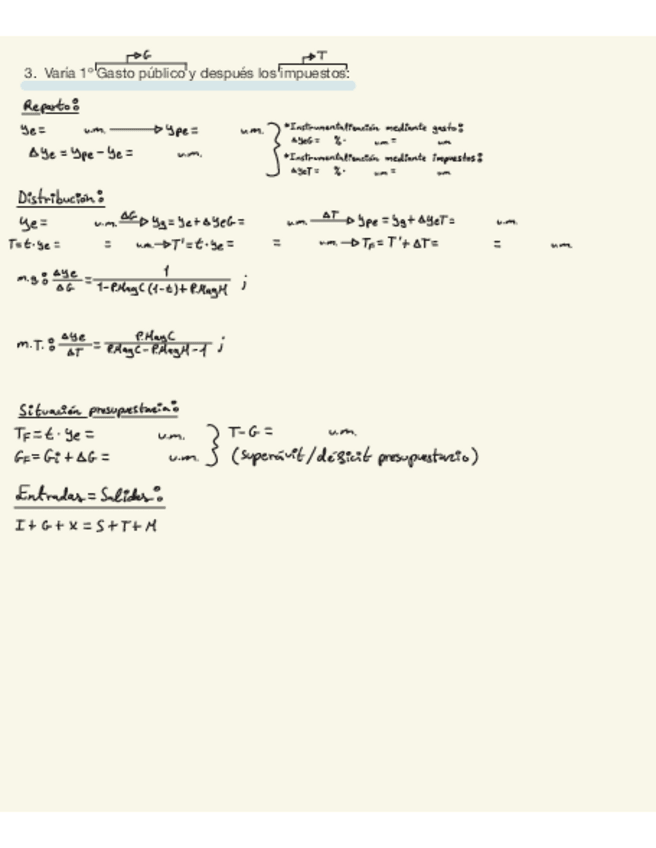 G
T
3. Varía 1º Gasto público y después los impuestos:
Reparto:
ye = u.m. → ype = u.m.
*Instrumentalización mediante gasto:
ΔyeG = %· um = um
Δye = ype - ye = u.m.
*Instrumentalización mediante impuestos:
ΔyeT = %· um = um
Distribución:
ye = u.m. ΔG → yg = ye + ΔyeG = u.m. ΔT → ype = yg + ΔyeT = u.m.
T = t · ye = = u.m. → T' = t · ye = = u.m. → TF = T' + ΔT = = u.m.
m.g: Δye/ΔG = 1/(1-P.MagC(1-t)+P.MagM) ;
m.T.: Δye/ΔT = P.MagC/(P.MagC-P.MagM-1) ;
Situación presupuestaria:
TF = t · ye = u.m. } T - G = u.m.
GF = Gi + ΔG = u.m. (superávit/déficit presupuestario)
Entradas = Salidas:
I + G + X = S + T + M